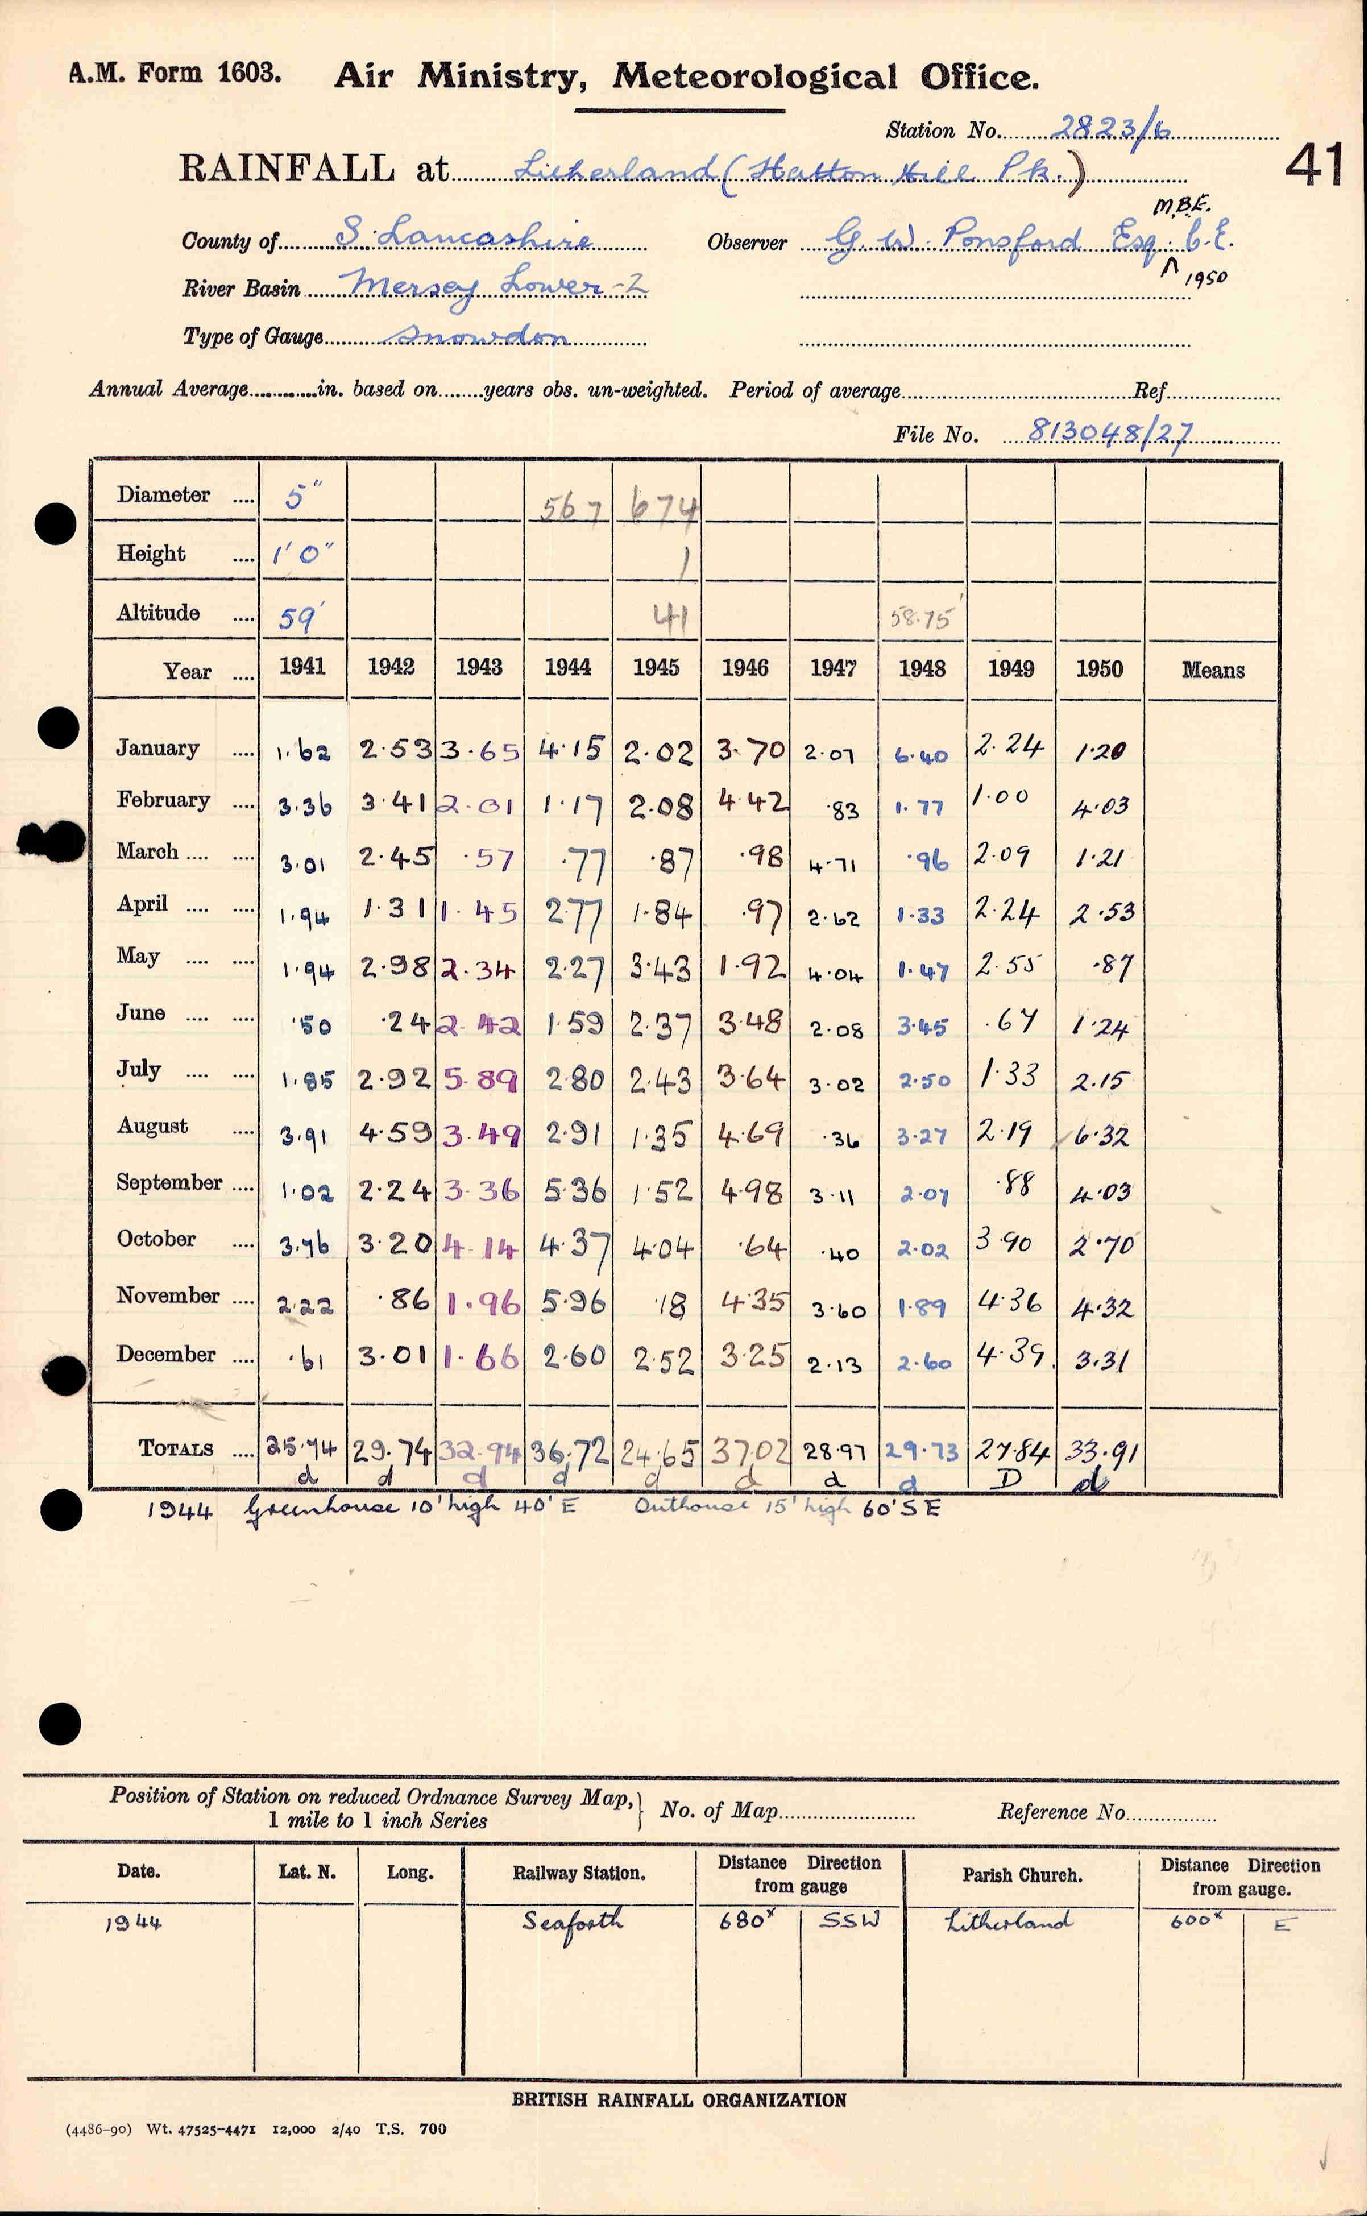 A.M. Form 1603. Air Ministry, Meteorological Office.
Station No. 2823/6
41
RAINFALL at Litherland (Hatton Hill Pk.)
M.B.E.
County of S. Lancashire Observer G. W. Ponsford Esq. C.E.
1950
River Basin Mersey Lower-2
Type of Gauge Snowdon
Annual Average in. based on years obs. un-weighted. Period of average Ref.
File No. 813048/27
Diameter .... 5" 567 674
Height .... 1'0" 1
Altitude .... 59' 41 58.75'
Year .... 1941 1942 1943 1944 1945 1946 1947 1948 1949 1950 Means
January .... 1.62 2.53 3.65 4.15 2.02 3.70 2.07 6.40 2.24 1.20
February .... 3.36 3.41 2.01 1.17 2.08 4.42 .83 1.77 1.00 4.03
March .... .... 3.01 2.45 .57 .77 .87 .98 4.71 .96 2.09 1.21
April .... .... 1.94 1.31 1.45 2.77 1.84 .97 2.62 1.33 2.24 2.53
May .... .... 1.94 2.98 2.34 2.27 3.43 1.92 4.04 1.47 2.55 .87
June .... .... .50 .24 2.42 1.59 2.37 3.48 2.08 3.45 .67 1.24
July .... .... 1.85 2.92 5.89 2.80 2.43 3.64 3.02 2.50 1.33 2.15
August .... 3.91 4.59 3.49 2.91 1.35 4.69 .36 3.27 2.19 6.32
September .... 1.02 2.24 3.36 5.36 1.52 4.98 3.11 2.07 .88 4.03
October .... 3.76 3.20 4.14 4.37 4.04 .64 .40 2.02 3.90 2.70
November .... 2.22 .86 1.96 5.96 .18 4.35 3.60 1.89 4.36 4.32
December .... .61 3.01 1.66 2.60 2.52 3.25 2.13 2.60 4.39 3.31
TOTALS .... 25.74 29.74 32.94 36.72 24.65 37.02 28.97 29.73 27.84 33.91
d d d d d d d d D d
1944 Greenhouse 10' high 40' E Outhouse 15' high 60' SE
Position of Station on reduced Ordnance Survey Map, 1 mile to 1 inch Series } No. of Map Reference No.
Date. Lat. N. Long. Railway Station. Distance Direction from gauge Parish Church. Distance Direction from gauge.
1944 Seaforth 680x SSW Litherland 600x E
BRITISH RAINFALL ORGANIZATION
(4486-90) Wt. 47525-4471 12,000 2/40 T.S. 700